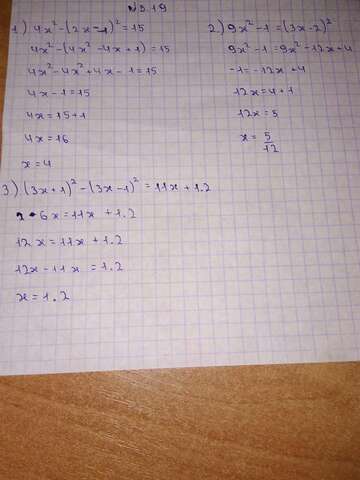 №5.19
1) 4x² - (2x - 1)² = 15
4x² - (4x² - 4x + 1) = 15
4x² - 4x² + 4x - 1 = 15
4x - 1 = 15
4x = 15 + 1
4x = 16
x = 4
2) 9x² - 1 = (3x - 2)²
9x² - 1 = 9x² - 12x + 4
-1 = -12x + 4
12x = 4 + 1
12x = 5
x = 5/12
3) (3x + 1)² - (3x - 1)² = 11x + 1.2
2 · 6x = 11x + 1.2
12x = 11x + 1.2
12x - 11x = 1.2
x = 1.2